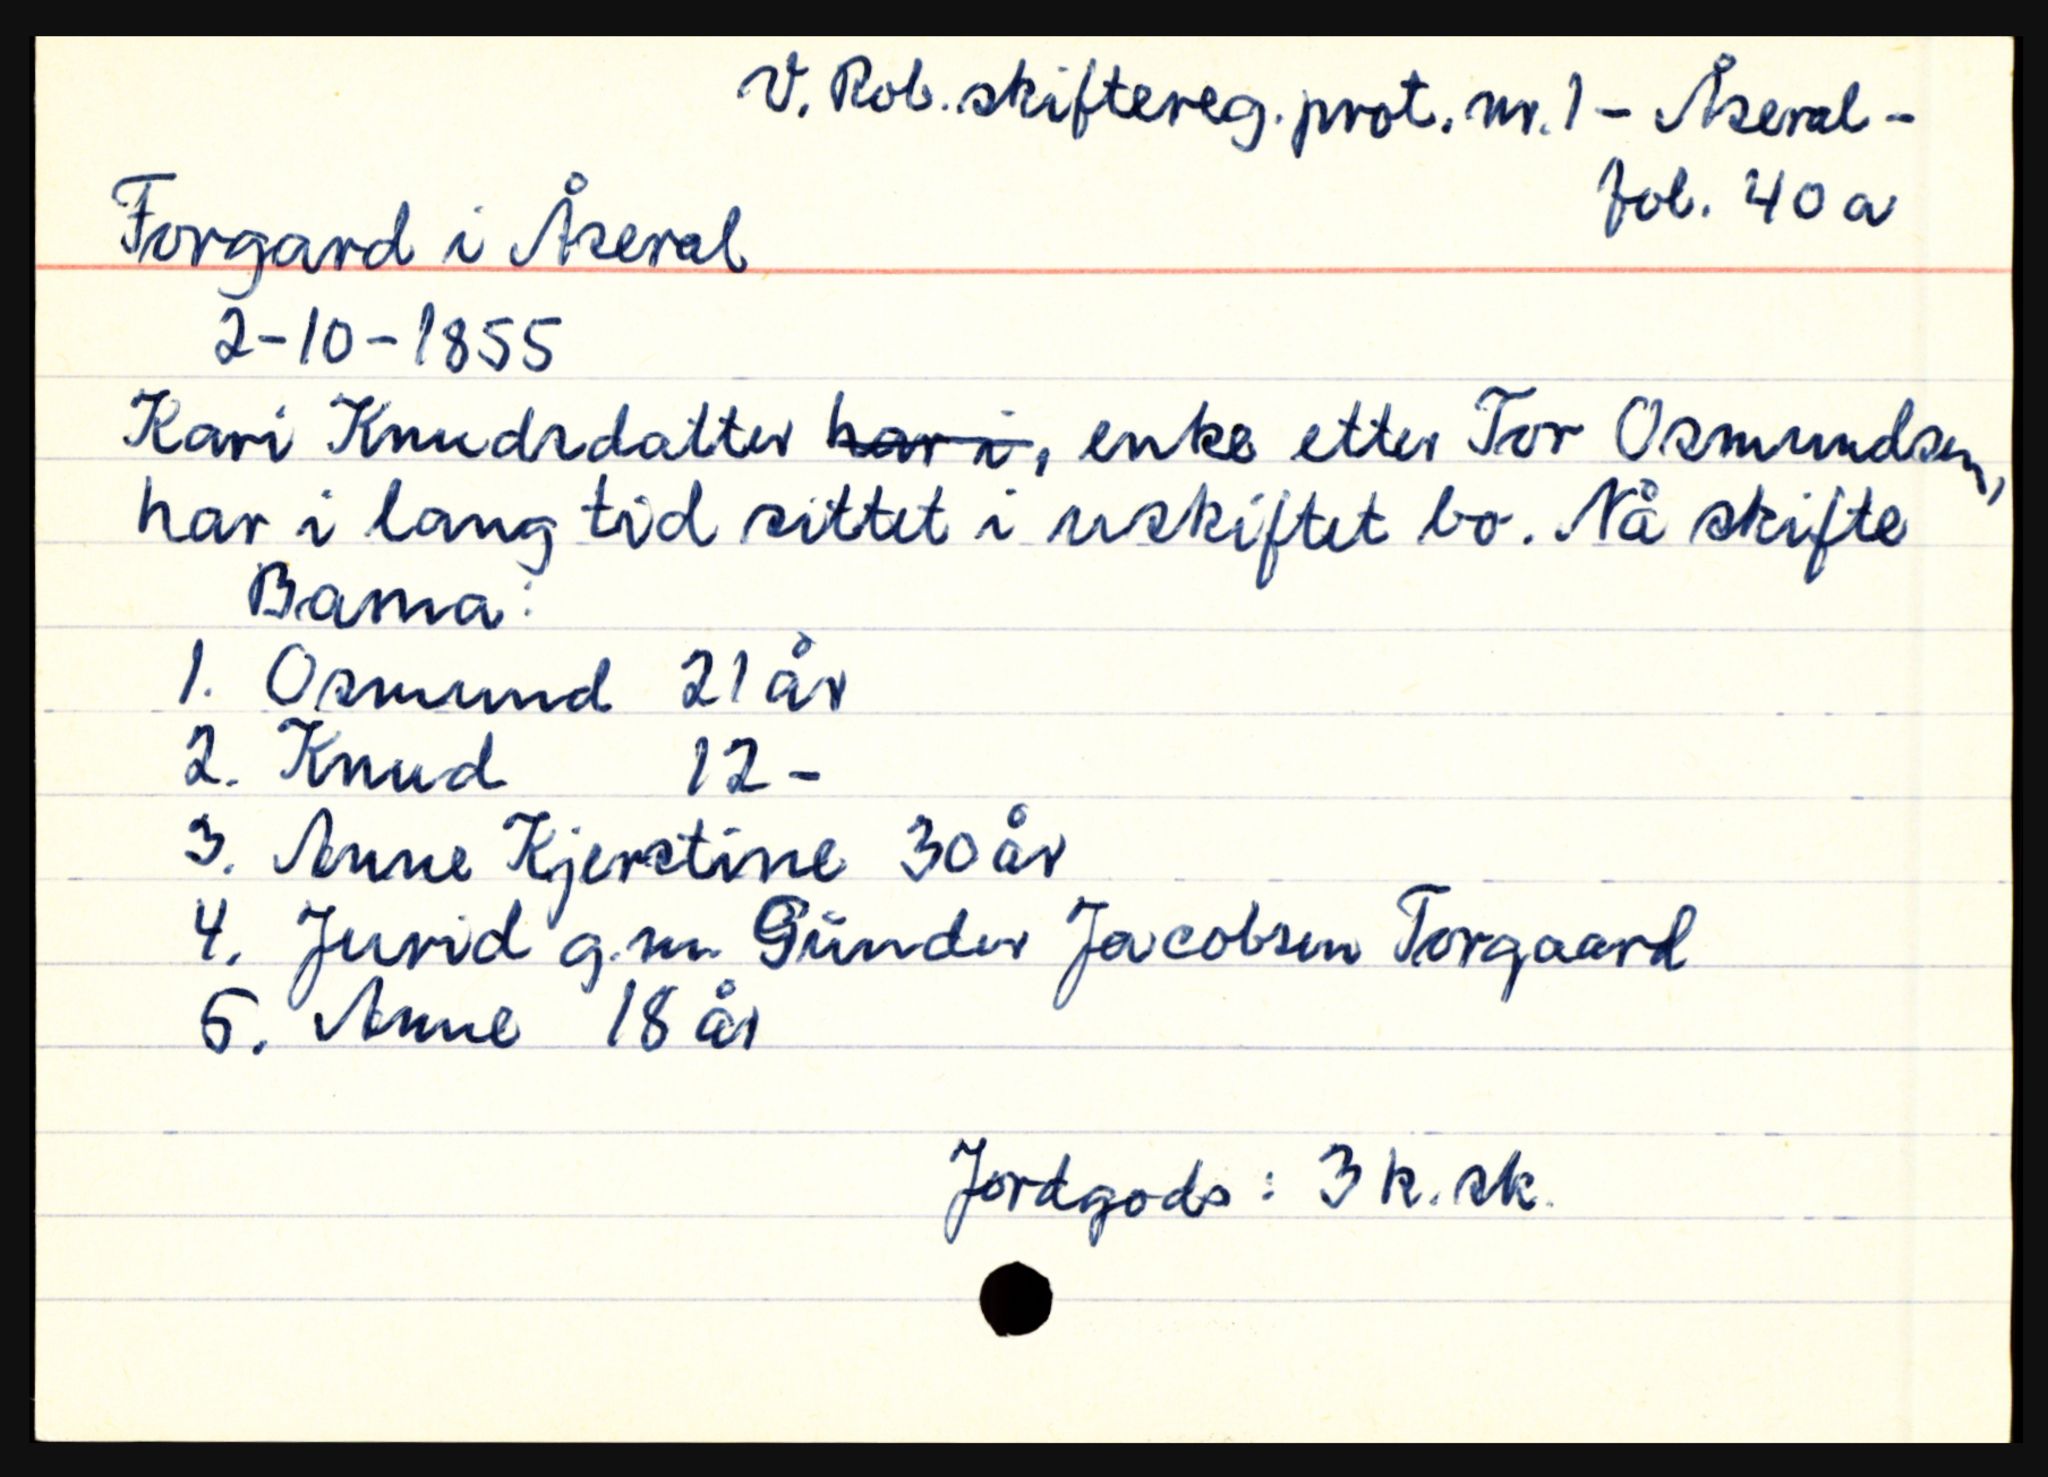 V. Rob. skiftereg. prot. nr. 1 - Åseral -
fol. 40 a
Forgard i Åseral
2-10-1855
Kari Knudsdatter har i, enke etter Tor Osmundsen,
har i lang tid sittet i uskiftet bo. Nå skifte
Barna:
1. Osmund 21 år
2. Knud 12 -
3. Anne Kjerstine 30 år
4. Jurid g.m. Gunder Jacobsen Torgaard
5. Anne 18 år
Jordgods: 3 k. sk.